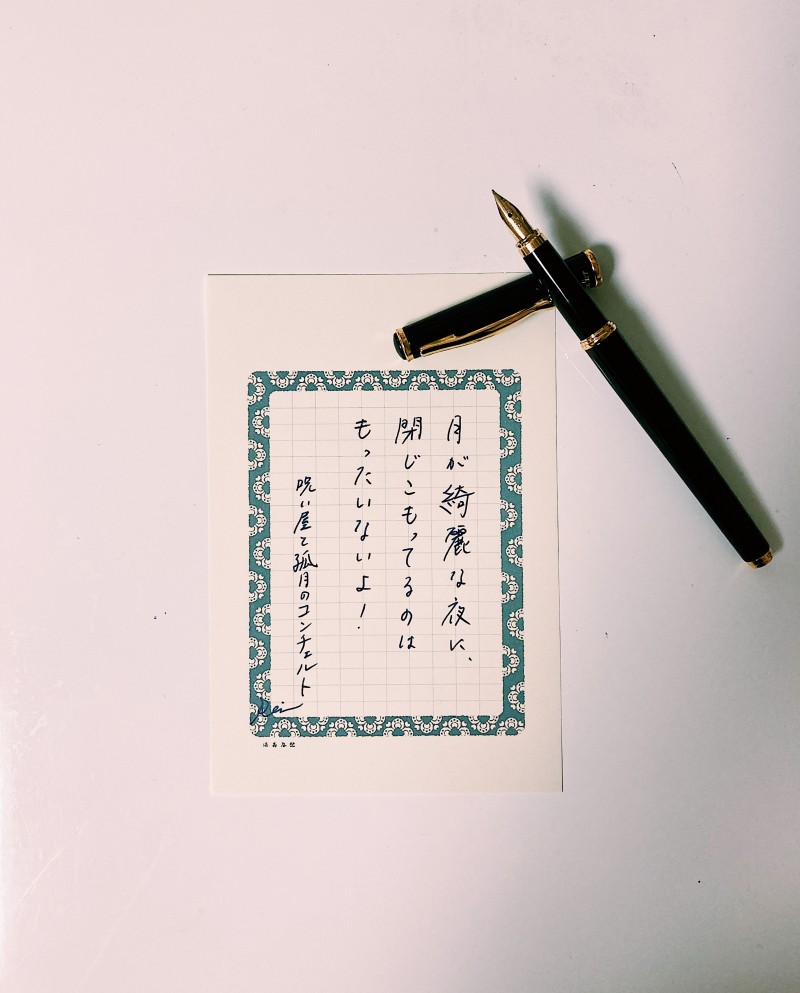 月が綺麗な夜に、
閉じこもってるのは
もったいないよ！
呪い屋と孤月のコンチェルト
Mei